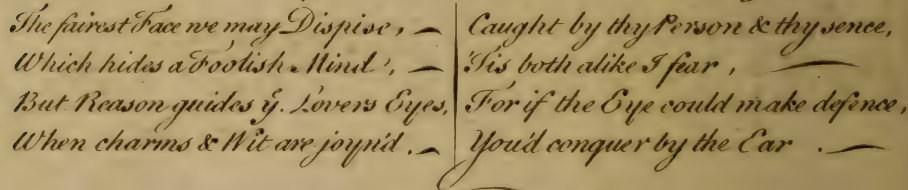 The fairest Face we may Dispise,
Which hides a Foolish Mind,
But Reason guides ỹ. Lovers Eyes,
When charms & Wit are joyn'd.
Caught by thy Person & thy sence,
'Tis both alike I fear,
For if the Eye could make defence,
You'd conquer by the Ear.